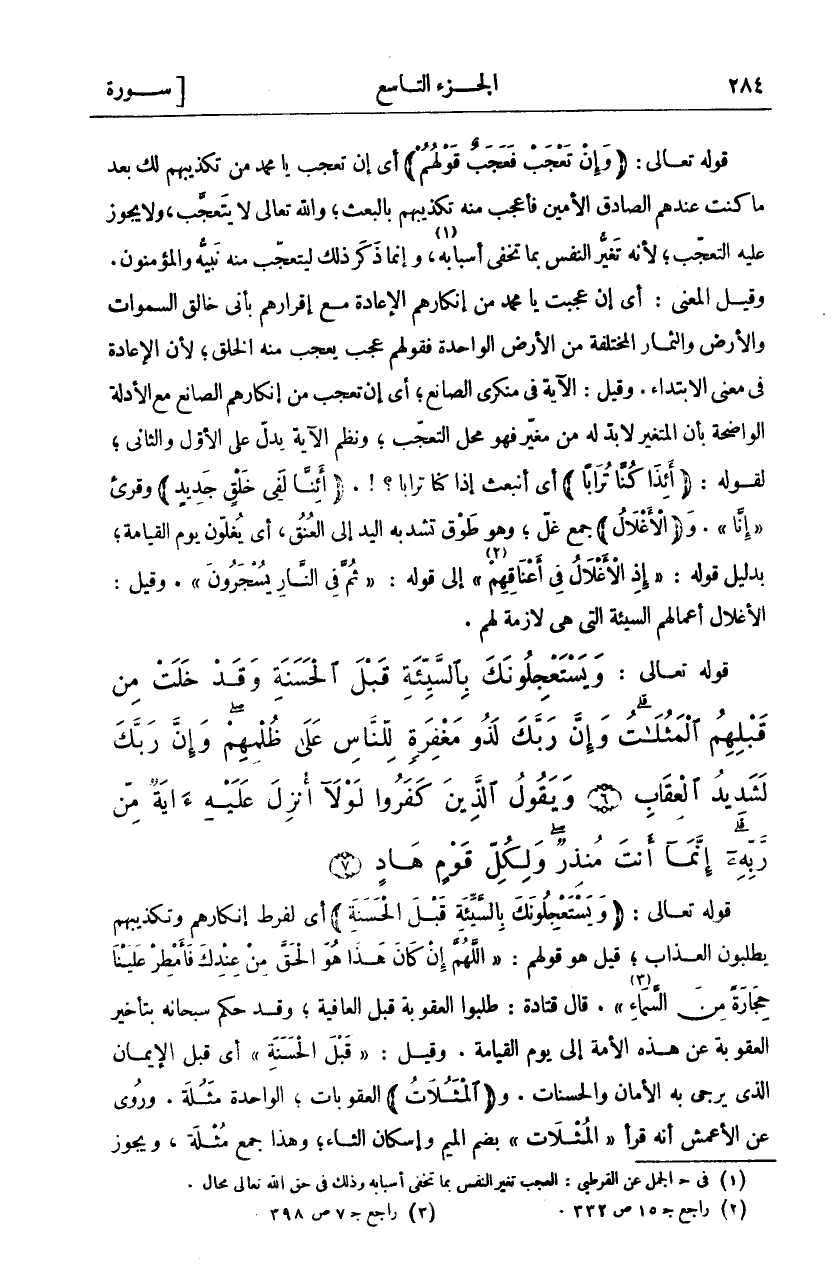 ٢٨٤ الجزء التاسع [ سورة
قوله تعالى : ﴿ وَإِنْ تَعْجَبْ فَعَجَبٌ قَوْلُهُمْ ﴾ أى إن تعجب يا محمد من تكذيبهم لك بعد
ما كنت عندهم الصادق الأمين فأعجب منه تكذيبهم بالبعث ؛ والله تعالى لا يتعجَّب ، ولا يجوز
عليه التعجّب ؛ لأنه تَغيُّر النفس بما تخفى أسبابه (١) ، وإنما ذَكَر ذلك ليتعجّب منه نَبيّه والمؤمنون .
وقيل المعنى : أى إن عجبت يا محمد من إنكارهم الإعادة مع إقرارهم بأنى خالق السموات
والأرض والثمار المختلفة من الأرض الواحدة فقولهم عجب يعجب منه الخلق ؛ لأن الإعادة
فى معنى الابتداء . وقيل : الآية فى منكرى الصانع ؛ أى إن تعجب من إنكارهم الصانع مع الأدلة
الواضحة بأن المتغير لابدّ له من مغيّر فهو محل التعجّب ؛ ونظم الآية يدلّ على الأوّل والثانى ؛
لقوله : ﴿ أَئِذَا كُنَّا تُرَابًا ﴾ أى أنبعث إذا كنا ترابا ؟ ! . ﴿ أَئِنَّا لَفِى خَلْقٍ جَدِيدٍ ﴾ وقرئ
« إِنَّا » . وَ﴿ الْأَغْلَالُ ﴾ جمع غلّ ؛ وهو طَوْق تشد به اليد إلى العُنُق ، أى يُغلّون يوم القيامة ؛
بدليل قوله : « إِذِ الْأَغْلَالُ فِى أَعْنَاقِهِمْ (٢) » إلى قوله : « ثُمَّ فِى النَّارِ يُسْجَرُونَ » . وقيل :
الأغلال أعمالهم السيئة التى هى لازمة لهم .
قوله تعالى : وَيَسْتَعْجِلُونَكَ بِٱلسَّيِّئَةِ قَبْلَ ٱلْحَسَنَةِ وَقَدْ خَلَتْ مِن
قَبْلِهِمُ ٱلْمَثُلَـٰتُ ۗ وَإِنَّ رَبَّكَ لَذُو مَغْفِرَةٍ لِّلنَّاسِ عَلَىٰ ظُلْمِهِمْ ۖ وَإِنَّ رَبَّكَ
لَشَدِيدُ ٱلْعِقَابِ ﴿٦﴾ وَيَقُولُ ٱلَّذِينَ كَفَرُوا لَوْلَآ أُنزِلَ عَلَيْهِ ءَايَةٌ مِّن
رَّبِّهِۦٓ ۗ إِنَّمَآ أَنتَ مُنذِرٌ ۖ وَلِكُلِّ قَوْمٍ هَادٍ ﴿٧﴾
قوله تعالى : ﴿ وَيَسْتَعْجِلُونَكَ بِالسَّيِّئَةِ قَبْلَ الْحَسَنَةِ ﴾ أى لفرط إنكارهم وتكذيبهم
يطلبون العذاب ؛ قيل هو قولهم : « اللَّهُمَّ إِنْ كَانَ هَـذَا هُوَ الْحَقَّ مِنْ عِنْدِكَ فَأَمْطِرْ عَلَيْنَا
حِجَارَةً مِنَ السَّمَاءِ (٣) » . قال قتادة : طلبوا العقوبة قبل العافية ؛ وقد حكم سبحانه بتأخير
العقوبة عن هذه الأمة إلى يوم القيامة . وقيل : « قَبْلَ الْحَسَنَةِ » أى قبل الإيمان
الذى يرجى به الأمان والحسنات . و﴿ الْمَثُلَاتُ ﴾ العقوبات ؛ الواحدة مَثُلَة . ورُوى
عن الأعمش أنه قرأ « الْمُثْلَات » بضم الميم وإسكان الثاء ؛ وهذا جمع مُثْلَة ، ويجوز
(١) فى حـ الجمل عن القرطبى : العجب تغير النفس بما تخفى أسبابه وذلك فى حق الله تعالى محال .
(٢) راجع جـ ١٥ ص ٣٣٢ . (٣) راجع جـ ٧ ص ٣٩٨